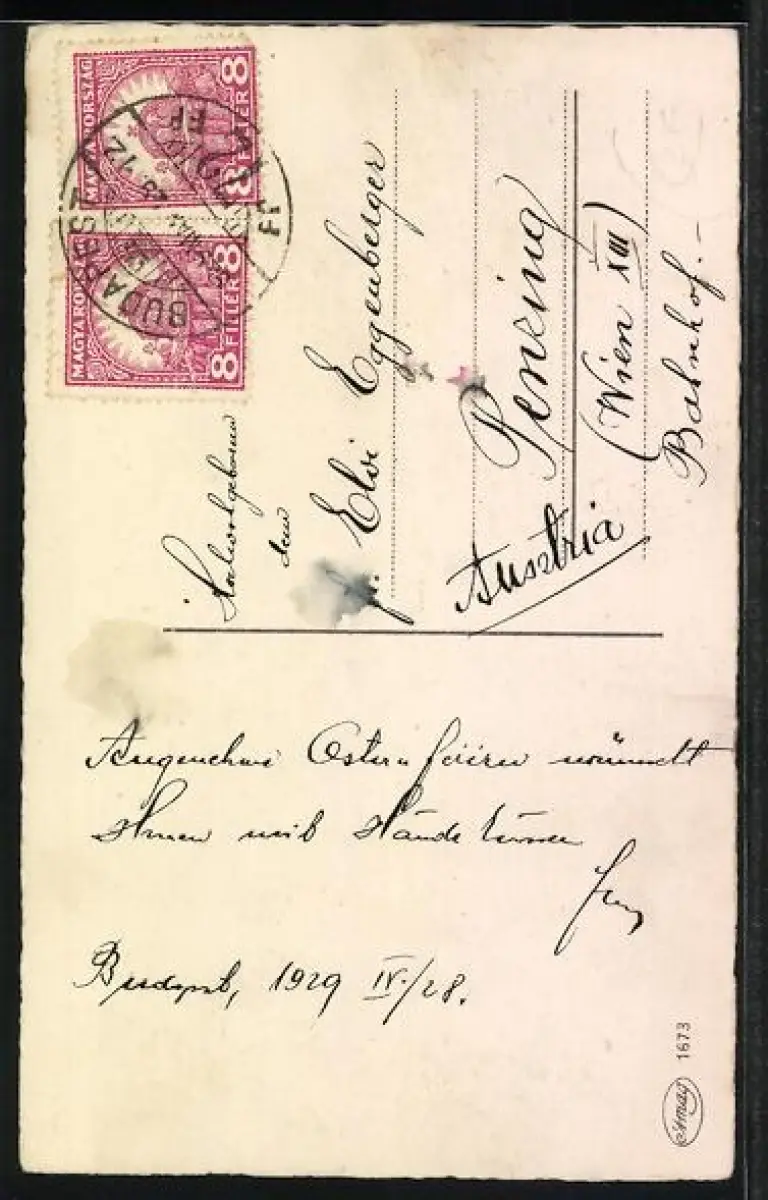 MAGYARORSZÁG
8 FILLÉR 8
MAGYARORSZÁG
8 FILLÉR 8
BUDAPEST
FF
Hochwohlgeboren
Elvi Eggenberger
Penzing
(Wien XIII)
Bahnhof.-
Austria
Angenehme Ostern feiern wünscht
Ihnen mit Hände küssen
Budapest, 1929 IV./28.
1673